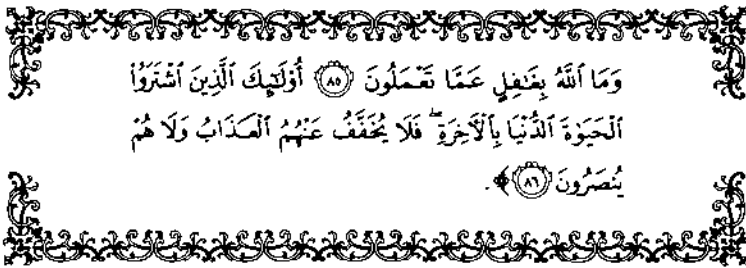 وَمَا ٱللَّهُ بِغَـٰفِلٍ عَمَّا تَعْمَلُونَ ۝٨٥ أُو۟لَـٰٓئِكَ ٱلَّذِينَ ٱشْتَرَوُا۟
ٱلْحَيَوٰةَ ٱلدُّنْيَا بِٱلْـَٔاخِرَةِ ۖ فَلَا يُخَفَّفُ عَنْهُمُ ٱلْعَذَابُ وَلَا هُمْ
يُنصَرُونَ ۝٨٦﴾.